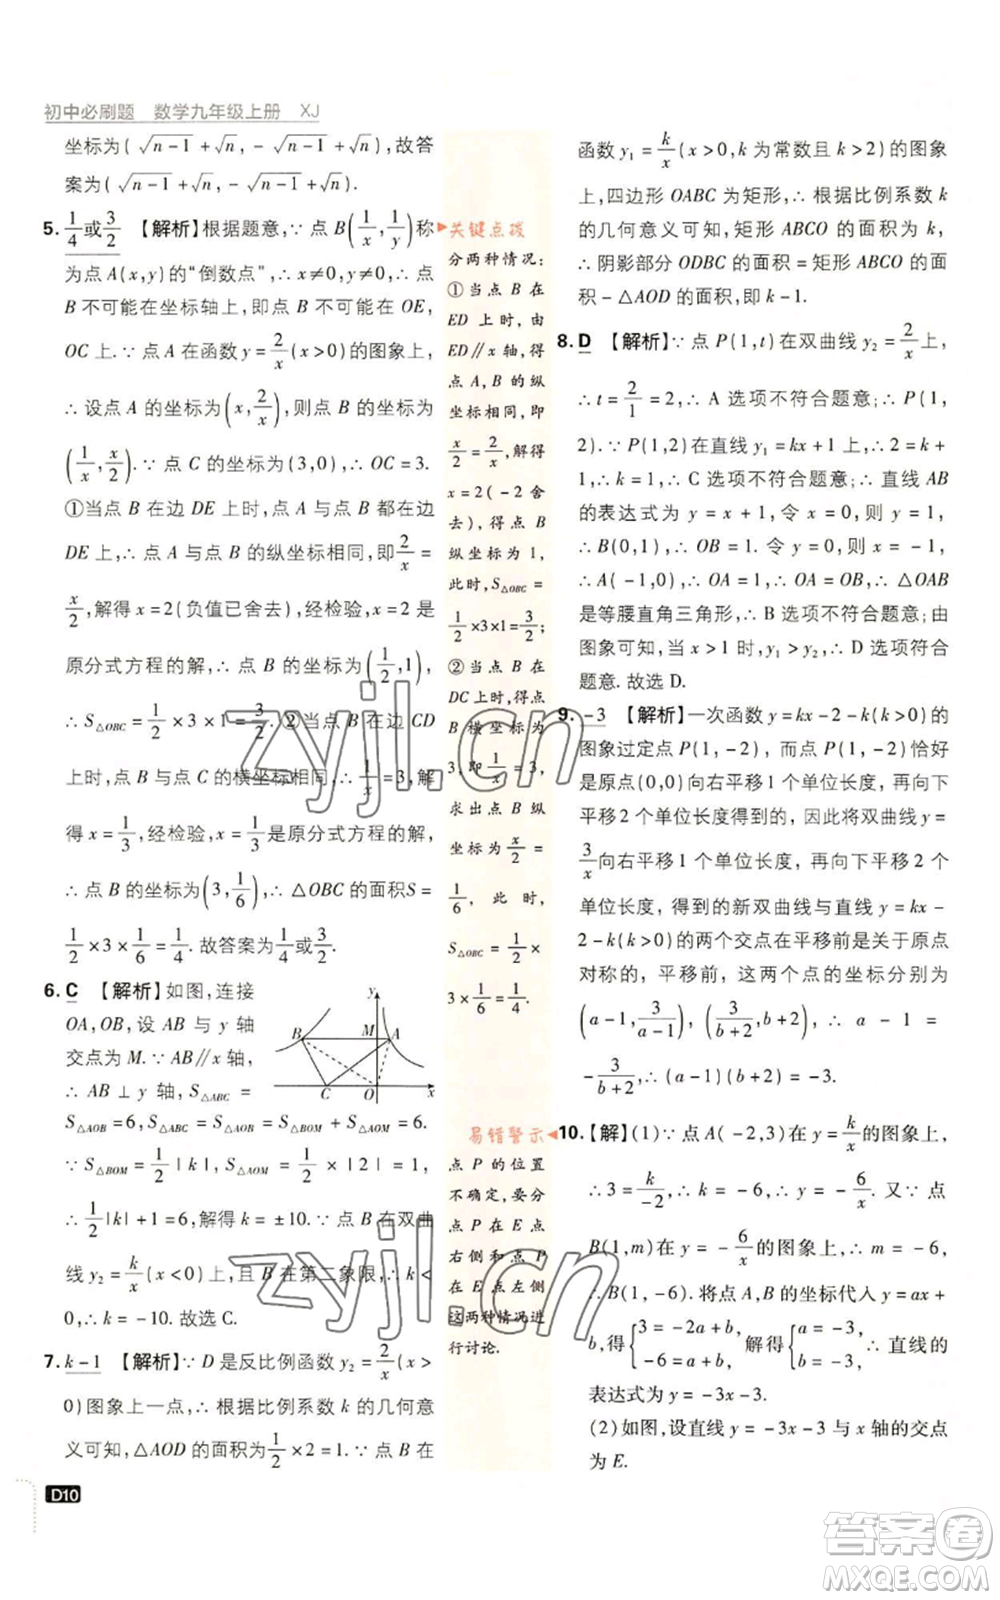 初中必刷题 数学九年级上册 XJ
坐标为(√(n-1)+√n,-√(n-1)+√n),故答
案为(√(n-1)+√n,-√(n-1)+√n).
5. 1/4或3/2 【解析】根据题意,∵点B(1/x,1/y)称
为点A(x,y)的“倒数点”,∴x≠0,y≠0,∴点
B不可能在坐标轴上,即点B不可能在OE,
OC上.∵点A在函数y=2/x(x>0)的图象上,
∴设点A的坐标为(x,2/x),则点B的坐标为
(1/x,x/2).∵点C的坐标为(3,0),∴OC=3.
①当点B在边DE上时,∵点A,B都在边
DE上,∴点A,B的纵坐标相同,即2/x=
x/2,解得x=2(负值已舍去),经检验,x=2是
原分式方程的解,∴点B的坐标为(1/2,1),
∴S△OBC=1/2×3×1=3/2.②当点B在边CD
上时,点B与点C的横坐标相同,∴1/x=3,解
得x=1/3,经检验,x=1/3是原分式方程的解,
∴点B的坐标为(3,1/6),∴△OBC的面积S=
1/2×3×1/6=1/4.故答案为1/4或3/2.
6. C 【解析】如图,连接
OA,OB,设AB与y轴
交点为M.∵AB∥x轴,
∴AB⊥y轴,S△ABC=
y
B M A
C O x
S△AOB=6,S△ABC=S△AOB=S△BOM+S△AOM=6.
∵S△BOM=1/2|k|,S△AOM=1/2×|2|=1,
∴1/2|k|+1=6,∴k=±10.∵点B在双曲
线y₂=k/x(x<0)上,且B在第二象限,∴k<
0,∴k=-10.故选C.
7. k-1 【解析】∵D是反比例函数y₂=2/x(x>
0)图象上一点,∴根据比例系数k的几何意
义可知,△AOD的面积为1/2×2=1.∵点B在
D10
关键点拨
分两种情况:
①当点B在
ED上时,由
ED∥x轴,得
点A,B的纵
坐标相同,即
x/2=2/x,解得
x=2(-2舍
去),得点B
纵坐标为1,
此时,S△OBC=
1/2×3×1=3/2;
②当点B在
DC上时,得点
B横坐标为
3,即1/x=3,
求出点B纵
坐标为x/2=
1/6,此时,
S△OBC=1/2×
3×1/6=1/4.
易错警示
点P的位置
不确定,要分
点P在E点
右侧和点P
在E点左侧
这两种情况进
行讨论.
函数y₁=k/x(x>0,k为常数且k>2)的图象
上,四边形OABC为矩形,∴根据比例系数k
的几何意义可知,矩形ABCO的面积为k,
∴阴影部分ODBC的面积=矩形ABCO的
面积-△AOD的面积,即k-1.
8. D 【解析】∵点P(1,t)在双曲线y₂=2/x上,
∴t=2/1=2,∴A选项不符合题意;∴P(1,
2).∵P(1,2)在直线y₁=kx+1上,∴2=k+
1,∴k=1,∴C选项不符合题意;∴直线AB
的表达式为y=x+1,令x=0,则y=1,
∴B(0,1),∴OB=1.令y=0,则x=-1,
∴A(-1,0),∴OA=1,∴OA=OB,∴△OAB
是等腰直角三角形,∴B选项不符合题意;由
图象可知,当x>1时,y₁>y₂,∴D选项符合
题意.故选D.
9. -3 【解析】一次函数y=kx-2-k(k>0)的
图象过定点P(1,-2),而点P(1,-2)恰好
是原点(0,0)向右平移1个单位长度,再向下
平移2个单位长度得到的,因此将双曲线y=
3/x向右平移1个单位长度,再向下平移2个
单位长度,得到的新双曲线与直线y=kx-
2-k(k>0)的两个交点在平移前是关于原点
对称的,平移前,这两个点的坐标分别为
(a-1,3/(a-1)),(3/(b+2),b+2),∴a-1=
-3/(b+2),∴(a-1)(b+2)=-3.
10. 【解】(1)∵点A(-2,3)在y=k/x的图象上,
∴3=k/-2,∴k=-6,∴y=-6/x.又∵点
B(1,m)在y=-6/x的图象上,∴m=-6,
∴B(1,-6).将点A,B的坐标代入y=ax+
b,得{3=-2a+b, -6=a+b, 解得{a=-3, b=-3, ∴直线的
表达式为y=-3x-3.
(2)如图,设直线y=-3x-3与x轴的交点
为E.
zyjl.cn
zyjl.cn
答案圈
MXQE.COM